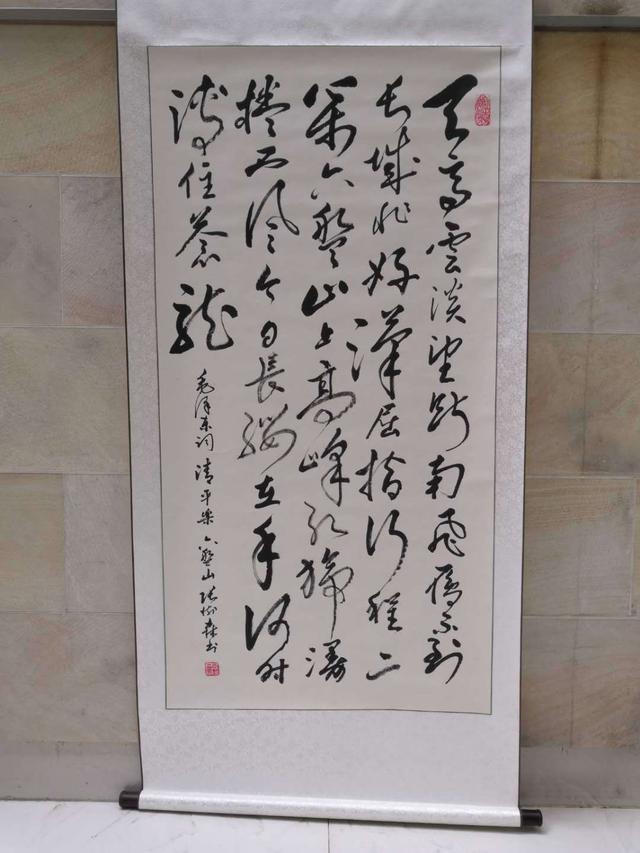 天高雲淡望断南飛雁不到
长城非好漢屈指行程二
萬六盤山上高峰红旗漫
捲西风今日長纓在手何时
缚住蒼龙
毛泽东词 清平樂 六盤山 张树森书